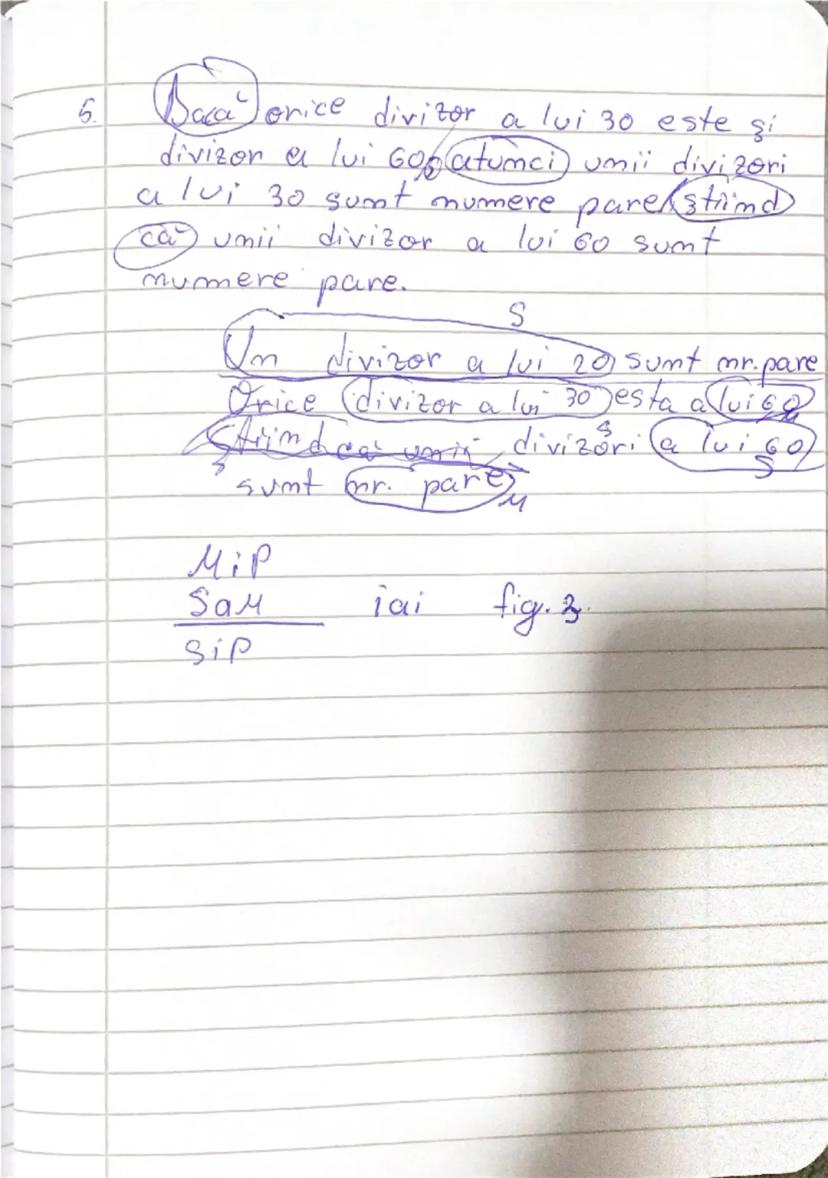 5. Dacă orice divizor a lui 30 este și
divizor a lui 60, atunci unii divizori
a lui 30 sunt numere pare știind
că unii divizor a lui 60 sunt
numere pare.
S
Un divizor a lui 20 sunt nr. pare
Orice divizor a lui 30 esta a lui 60
M
S
Știind că unii divizori a lui 60
S
sunt nr. pare
M
MiP
SaM iai fig. 3.
SiP